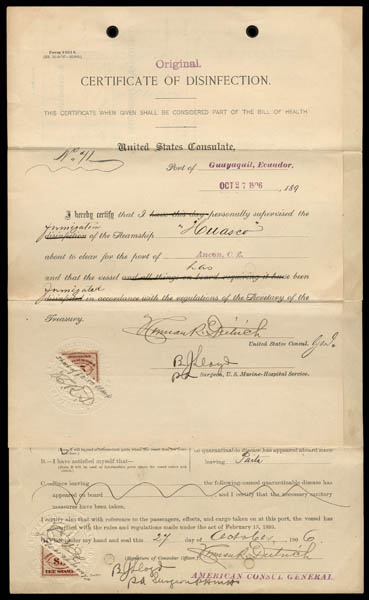 Original.
CERTIFICATE OF DISINFECTION.
THIS CERTIFICATE WHEN GIVEN SHALL BE CONSIDERED PART OF THE BILL OF HEALTH
United States Consulate,
No. 41
Port of Guayaquil, Ecuador,
OCT 27 1906, 189
I hereby certify that I have this day personally supervised the
fumigation
disinfection of the Steamship "Huasco"
about to clear for the port of Ancon, C. Z.
has
and that the vessel and all things on board requiring it have been
fumigated
disinfected in accordance with the regulations of the Secretary of the
Treasury.
Herman R. Dietrich
United States Consul Genl.
B J Lloyd
Surgeon, U. S. Marine-Hospital Service.
B.—I have satisfied myself that—
no quarantinable disease has appeared aboard since
leaving Paita
C.—Since leaving the following-named quarantinable disease has
appeared on board, and I certify that the necessary sanitary
measures have been taken.
I certify also that with reference to the passengers, effects, and cargo taken on at this port, the vessel has
complied with the rules and regulations made under the act of February 15, 1893.
Given under my hand and seal this 27 day of October, 1906
(Signature of Consular Officer.) Herman R. Dietrich
AMERICAN CONSUL GENERAL
B J Lloyd